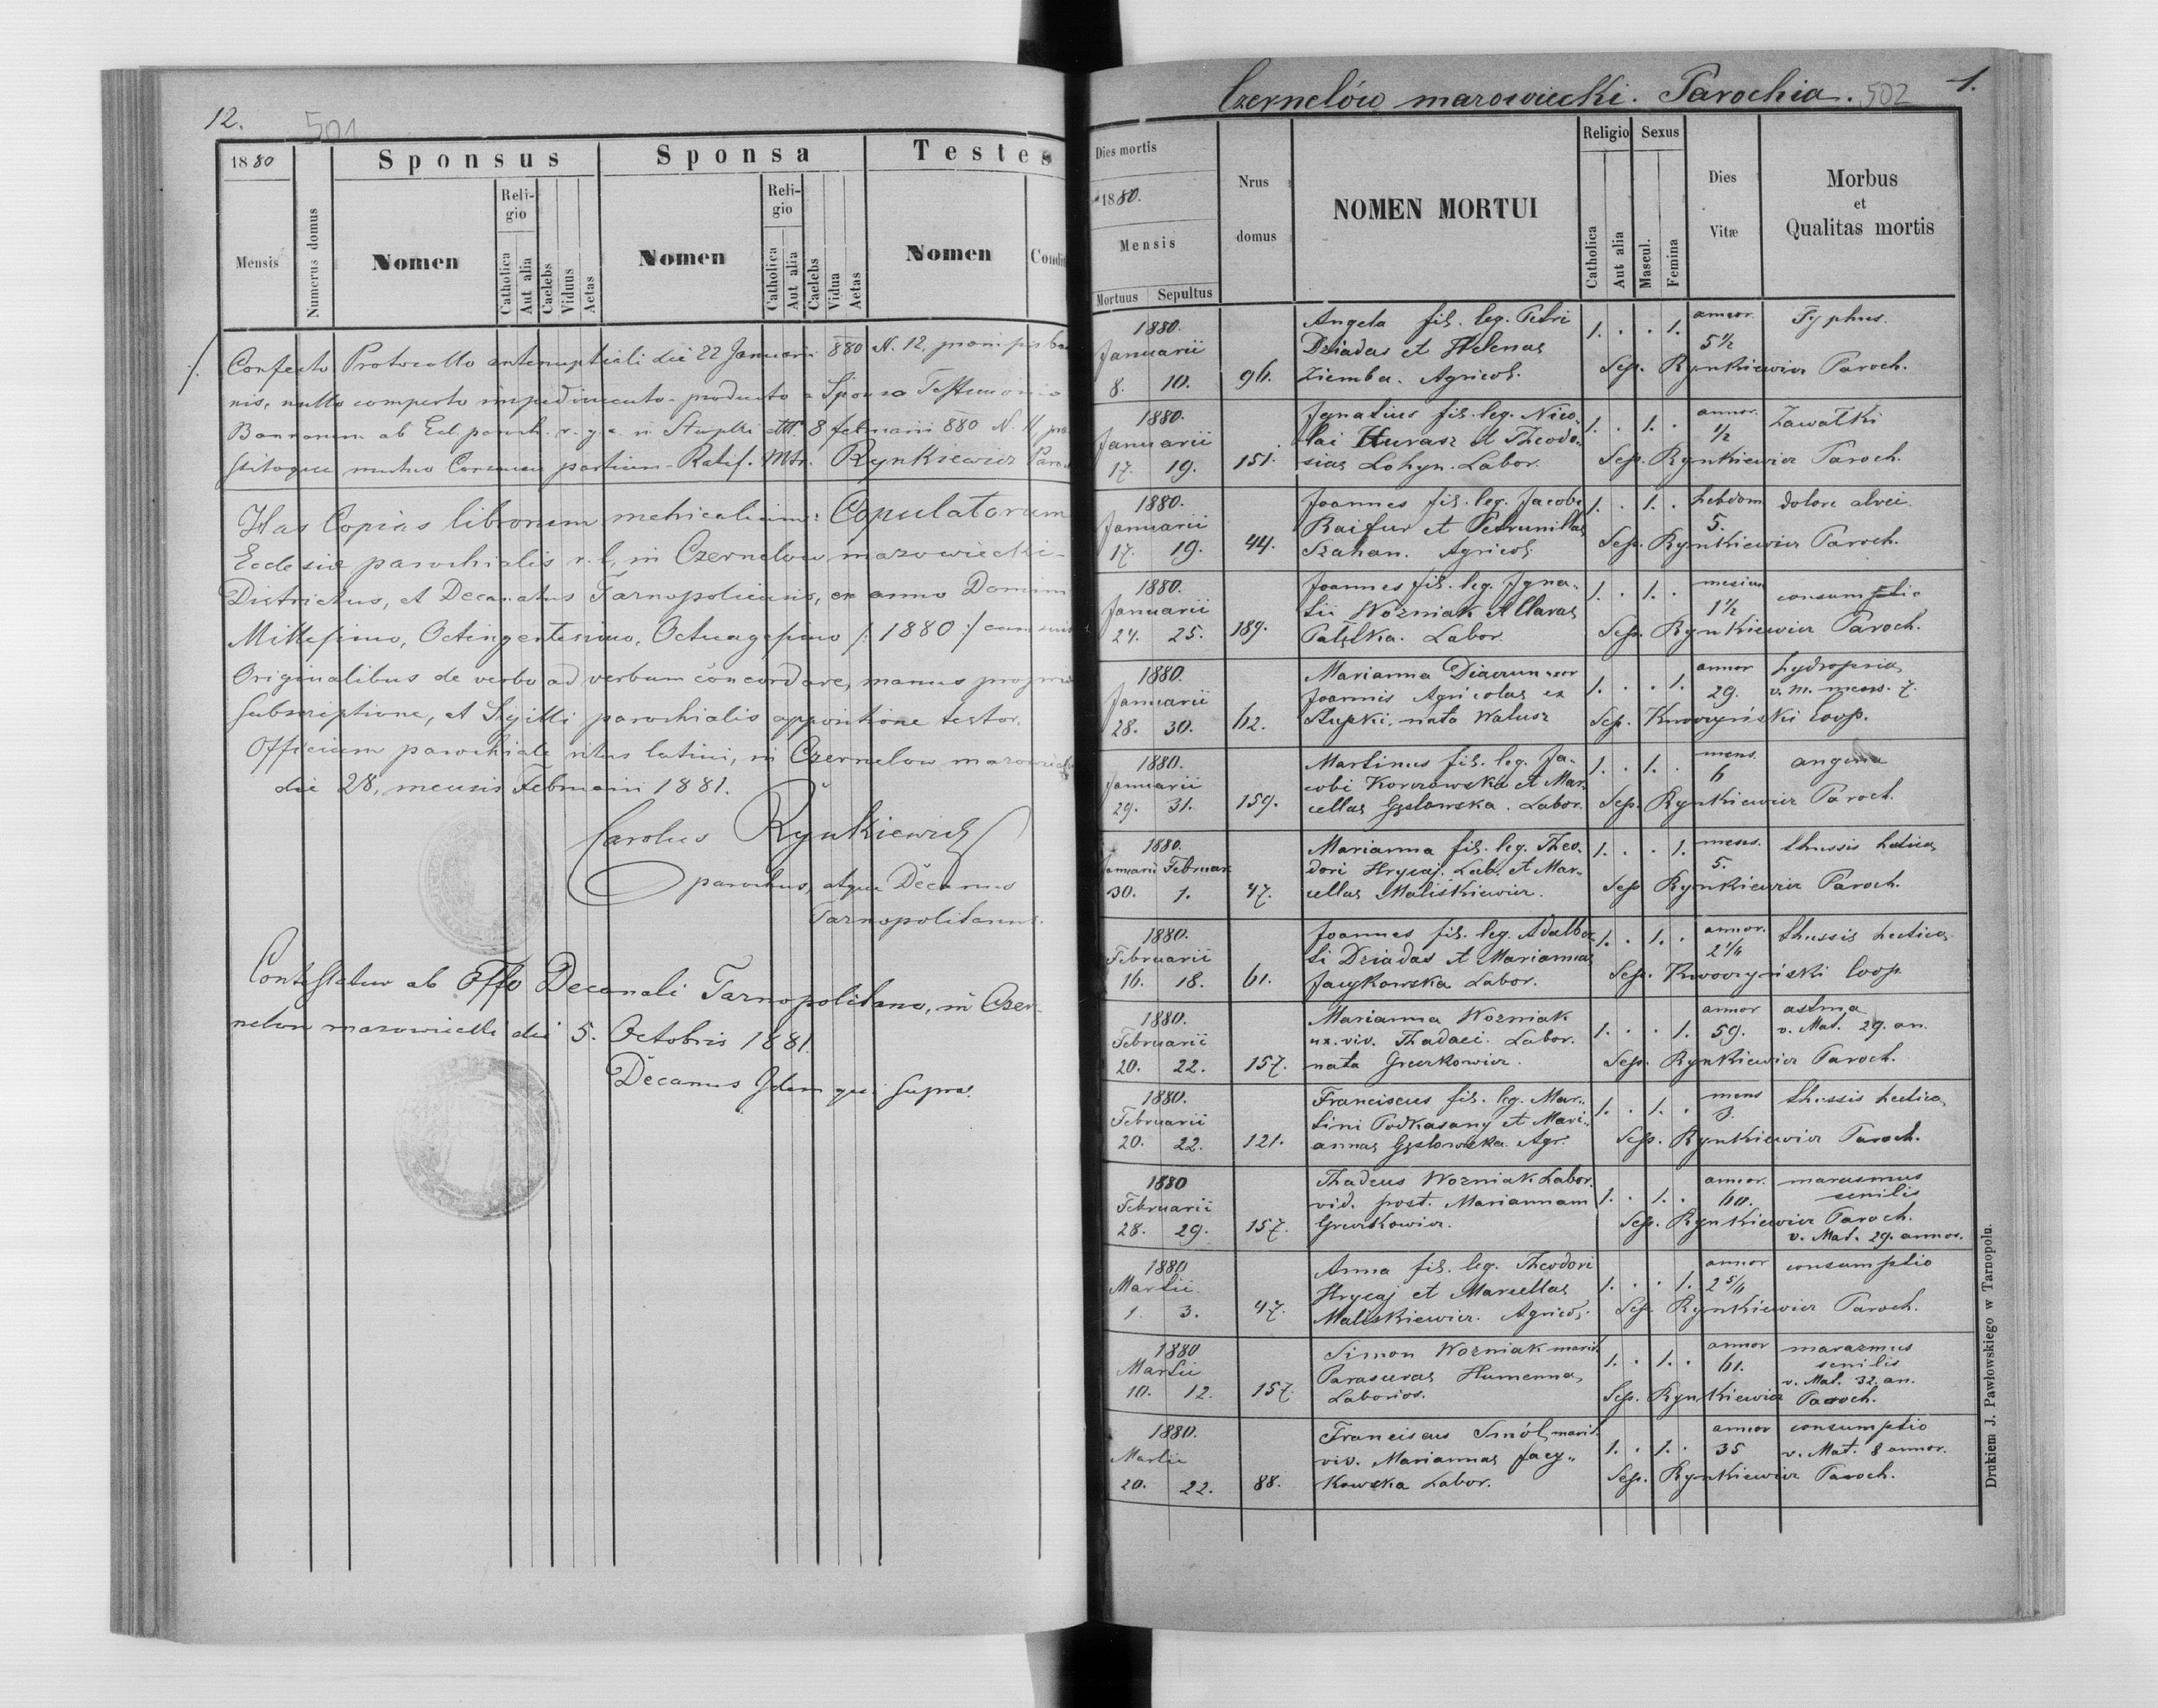 12.
501
1880
Mensis
Numerus domus
Sponsus
Nomen
Religio
Catholica
Aut alia
Caelebs
Viduus
Aetas
Sponsa
Nomen
Religio
Catholica
Aut alia
Caelebs
Vidua
Aetas
Testes
Nomen
Condi
Confecto Protocollo antenuptiali die 22 Januarii 880 N. 12, praemissis ban
nis, nullo comperto impedimento producto a Sponsa Testimonio
Bannorum ab Eccl. paroch. r. g. c. in Stupki 8 februarii 880 N. 11
mutuo Consensu partium Ratif. Mtr. Rynkiewicz Paroch
Has Copias librorum metricalium: Copulatorum
Ecclesiae parochialis r. l. in Czernelow mazowiecki
Districtus, et Decanatus Tarnopoliensis, ex anno Domini
Millesimo, Octingentesimo, Octuagesimo /: 1880 :/ cum suis
Originalibus de verbo ad verbum concordare, manus propriae
subscriptione, et Sigilli parochialis appositione testor.
Officium parochiale ritus latini, in Czernelow mazowiecki
die 28, mensis Februarii 1881.
Carolus Rynkiewicz
parochus, atque Decanus
Tarnopolitanus.
Contestatur ab Offo Decanali Tarnopolitano, in Czer-
nelow mazowiecki die 5. Octobris 1881.
Decanus Idem qui supra.
Czernelów mazowiecki. Parochia. 502 1.
Dies mortis
1880.
Mensis
Mortuus Sepultus
Nrus domus
NOMEN MORTUI
Religio
Catholica
Aut alia
Sexus
Mascul.
Femina
Dies Vitæ
Morbus
et
Qualitas mortis
1880. Angela fil. leg. Petri 1. . . 1. annor. Typhus.
Januarii Dziadas et Helenae 5 1/2
8. 10. 96. Ziemba. Agricol. Sep. Rynkiewicz Paroch.
1880. Ignatius fil. leg. Nico- 1. . 1. . annor. Zawałki
Januarii lai Hurasz et Theodo- 1/2
17. 19. 151. siae Lohyn. Labor. Sep. Rynkiewicz Paroch.
1880. Joannes fil. leg. Jacobi 1. . 1. . hebdom dolore alvei.
Januarii Baifur et Petrunillae 5.
17. 19. 44. Szahan. Agricol. Sep. Rynkiewicz Paroch.
1880. Joannes fil. leg. Igna- 1. . 1. . mesium consumptio
Januarii tii Wozniak et Clarae 1 1/2
24. 25. 189. Labor. Sep. Rynkiewicz Paroch.
1880. Marianna uxor 1. . . 1. annor hydropsia
Januarii Joannis Agricolae ex 29. v. m. mens. 7.
28. 30. 62. Stupki, nata Walusz Sep. Kwoczyński Coop.
1880. Martinus fil. leg. Ja- 1. . 1. . mens. angina
Januarii cobi Korczowska et Mar- 6
29. 31. 159. cellae Gęslowska. Labor. Sep. Rynkiewicz Paroch.
1880. Marianna fil. leg. Theo- 1. . . 1. mens. thussis hetica
Januarii Februar. dori Hrycaj. Lab. et Mar- 5.
30. 1. 47. cellae Maliskiewicz. Sep. Rynkiewicz Paroch.
1880. Joannes fil. leg. Adalber- 1. . 1. . annor. thussis hectica
Februarii ti Dziadas et Mariannae 2 1/4
16. 18. 61. Jacykowska Labor. Sep. Kwoczyński Coop.
1880. Marianna Wozniak 1. . . 1. annor astma
Februarii ux. viv. Thadaei. Labor. 59. v. Mat. 29. an.
20. 22. 157. nata Greczkowicz. Sep. Rynkiewicz Paroch.
1880. Franciscus fil. leg. Mar- 1. . 1. . mens thussis hectica
Februarii tini Podkasany et Mari- 3.
20. 22. 121. annae Gęslowska. Agr. Sep. Rynkiewicz Paroch.
1880 Thadeus Wozniak Labor. 1. . 1. . annor. marasmus
Februarii vid. post. Mariannam 60. senilis
28. 29. 157. Greczkowicz. Sep. Rynkiewicz Paroch.
v. Mat. 29. annor.
1880 Anna fil. leg. Theodori 1. . . 1. annor consumptio
Martii Hrycaj et Marcellae 2 3/4
1. 3. 47. Maliskiewicz. Agricol. Sep. Rynkiewicz Paroch.
1880 Simon Wozniak marit. 1. . 1. . annor marazmus
Martii Parascevae Humenna, 61. senilis
v. Mat. 32. an.
10. 12. 157. Laborios. Sep. Rynkiewicz Paroch.
1880. Franciscus Smól, marit. 1. . 1. . annor consumptio
Martii viv. Mariannae Jacy- 35 v. Mat. 8 annor.
20. 22. 88. kowska Labor. Sep. Rynkiewicz Paroch.
Drukiem J. Pawłowskiego w Tarnopolu.